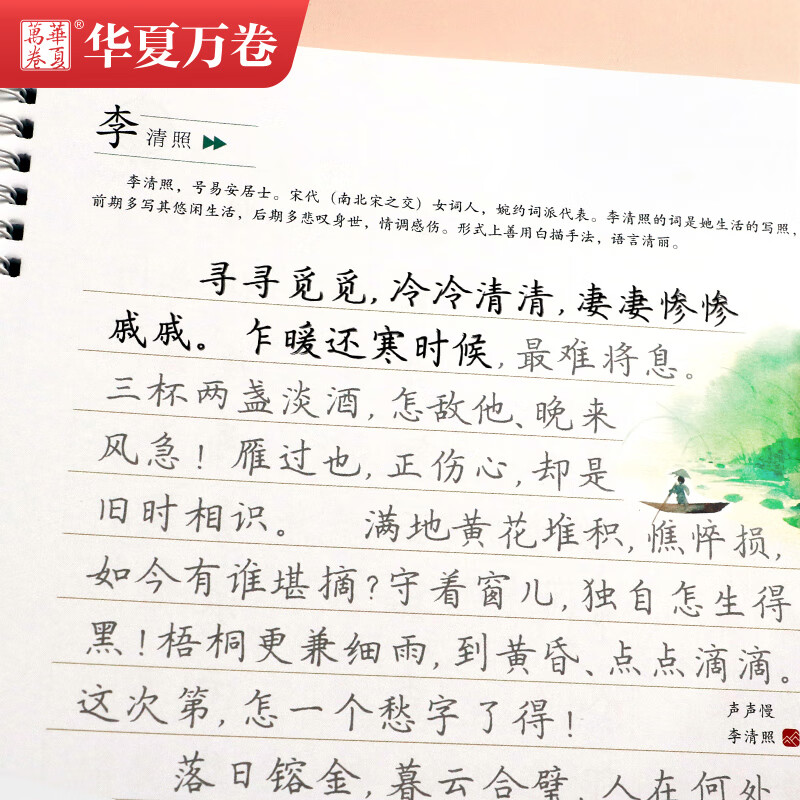 萬卷 華夏 ® 华夏万卷
李清照
李清照，号易安居士。宋代（南北宋之交）女词人，婉约词派代表。李清照的词是她生活的写照，
前期多写其悠闲生活，后期多悲叹身世，情调感伤。形式上善用白描手法，语言清丽。
寻寻觅觅，冷冷清清，凄凄惨惨
戚戚。乍暖还寒时候，最难将息。
三杯两盏淡酒，怎敌他、晚来
风急！雁过也，正伤心，却是
旧时相识。 满地黄花堆积，憔悴损，
如今有谁堪摘？守着窗儿，独自怎生得
黑！梧桐更兼细雨，到黄昏、点点滴滴。
这次第，怎一个愁字了得！
声声慢
李清照
落日镕金，暮云合璧，人在何处